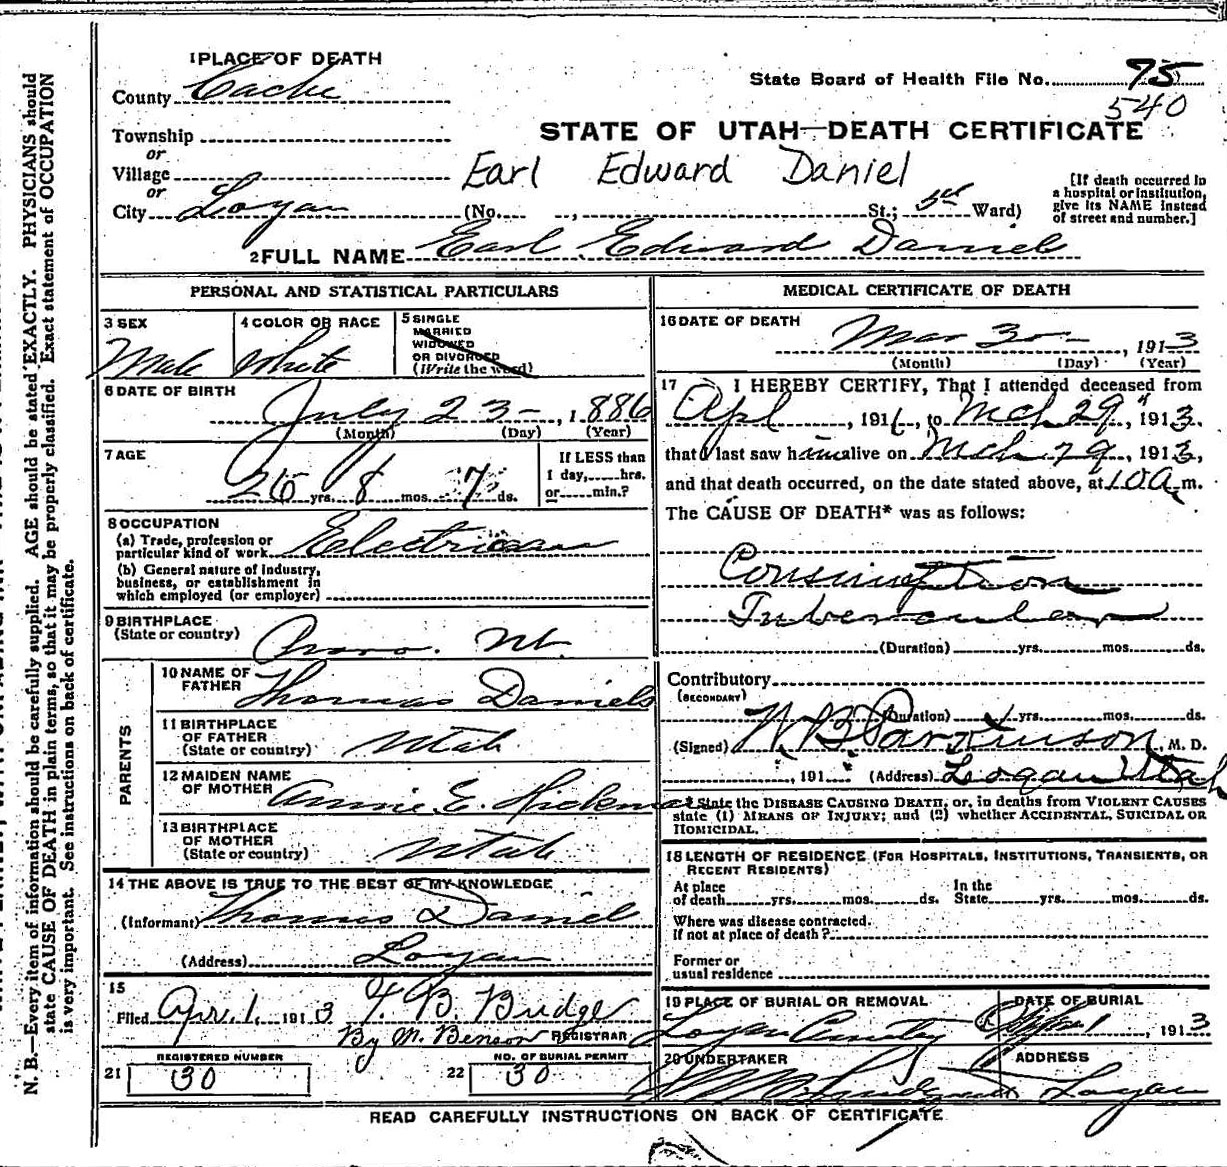 1 PLACE OF DEATH
County Cache
State Board of Health File No. 75
540
Township
or
STATE OF UTAH—DEATH CERTIFICATE
Village
or
Earl Edward Daniel
City Logan (No. , St.; 5th Ward)
[If death occurred in a hospital or institution, give its NAME instead of street and number.]
2 FULL NAME Earl Edward Daniels
PERSONAL AND STATISTICAL PARTICULARS
3 SEX
Male
4 COLOR OR RACE
White
5 SINGLE
MARRIED
WIDOWED
OR DIVORCED
(Write the word)
6 DATE OF BIRTH
July 23 - , 1886
(Month) (Day) (Year)
7 AGE
26 yrs. 8 mos. 7 ds.
If LESS than
1 day, hrs.
or min.?
8 OCCUPATION
(a) Trade, profession or
particular kind of work Electrician
(b) General nature of industry,
business, or establishment in
which employed (or employer)
9 BIRTHPLACE
(State or country) Provo. Ut.
PARENTS
10 NAME OF
FATHER Thomas Daniels
11 BIRTHPLACE
OF FATHER
(State or country) Utah
12 MAIDEN NAME
OF MOTHER Annie E. Hickman
13 BIRTHPLACE
OF MOTHER
(State or country) Utah
14 THE ABOVE IS TRUE TO THE BEST OF MY KNOWLEDGE
(Informant) Thomas Daniel
(Address) Logan
15
Filed Apr. 1, 1913 F. B. Budge
By M. Benson REGISTRAR
REGISTERED NUMBER
21 30
NO. OF BURIAL PERMIT
22 30
MEDICAL CERTIFICATE OF DEATH
16 DATE OF DEATH
Mar 30 - , 1913
(Month) (Day) (Year)
17 I HEREBY CERTIFY, That I attended deceased from
Apl , 191 , to Mch 29", 1913.
that I last saw him alive on Mch 29, 1913,
and that death occurred, on the date stated above, at 10 a m.
The CAUSE OF DEATH* was as follows:
Consumption
Tubercular
(Duration) yrs. mos. ds.
Contributory
(SECONDARY)
(Duration) yrs. mos. ds.
(Signed) W B Parkinson, M. D.
, 191 (Address) Logan Utah
* State the DISEASE CAUSING DEATH, or, in deaths from VIOLENT CAUSES
state (1) MEANS OF INJURY; and (2) whether ACCIDENTAL, SUICIDAL OR
HOMICIDAL.
18 LENGTH OF RESIDENCE (FOR HOSPITALS, INSTITUTIONS, TRANSIENTS, OR
RECENT RESIDENTS)
At place
of death yrs. mos. ds.
In the
State yrs. mos. ds.
Where was disease contracted.
If not at place of death ?
Former or
usual residence
19 PLACE OF BURIAL OR REMOVAL
Logan
DATE OF BURIAL
Apr 1, 1913
20 UNDERTAKER
ADDRESS
Logan
READ CAREFULLY INSTRUCTIONS ON BACK OF CERTIFICATE
N. B.—Every item of information should be carefully supplied. AGE should be stated EXACTLY. PHYSICIANS should
state CAUSE OF DEATH in plain terms, so that it may be properly classified. Exact statement of OCCUPATION
is very important. See instructions on back of certificate.